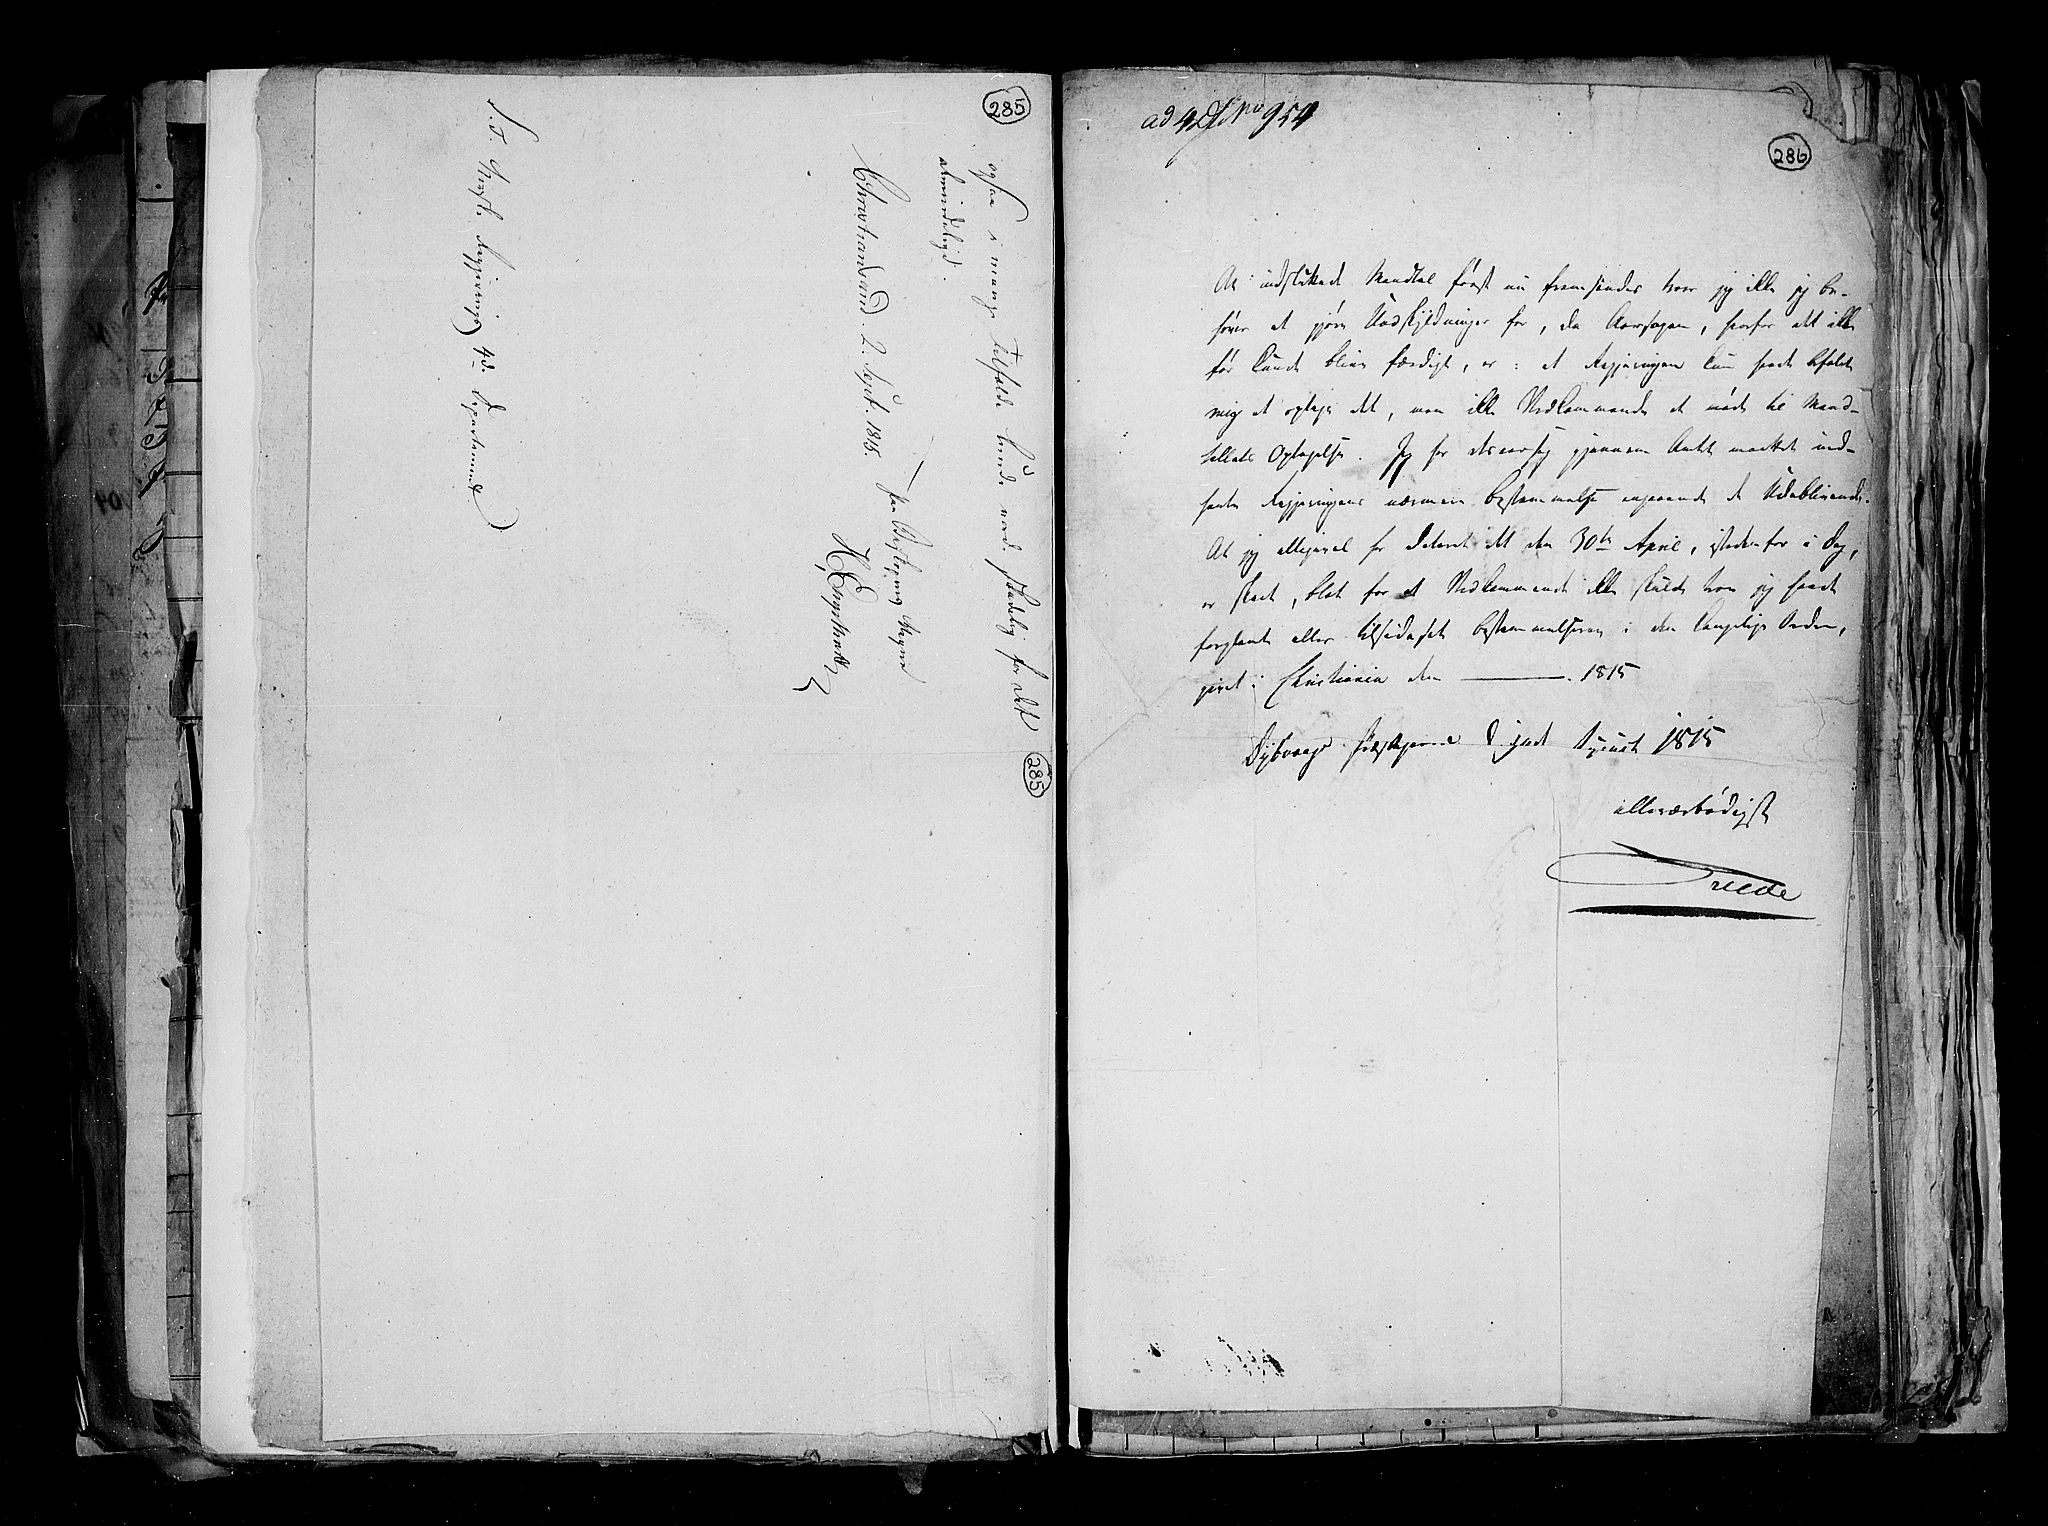 285
ogsaa i mange Tilfælde kunde være skadelig for det
almindelige.
Christiansand. 2. Sept. 1815.
H. Engelhart
S. T. Norsk. Regjerings 4de Departement
285
ad 4 D No 954
286
At indsluttede Mandtal først nu fremsendes troer jeg ikke jeg be-
høver at gjøre Undskyldninger for, da Aarsagen, hvorfor det ikke
før kunde blive færdigt, er: at Regjeringen kun havde befalet
mig at optage det, men ikke Vedkommende at møde til Mand-
tallets Optagelse. Jeg har desaarsag gjennem Amtet maattet ind-
hente Regjeringens nærmere Bestemmelse angaaende de Udeblivende.
At jeg alligevel har dateret det den 30te April, istedenfor i Dag,
er skeet, blot for at Vedkommende ikke skulde troe jeg havde
forglemt eller tilsidesat Bestemmelserne i den kongelige Orden,
givet i Christiania den ——— 1815
Dybvaags Præstegaard d August 1815
allerærbødigst